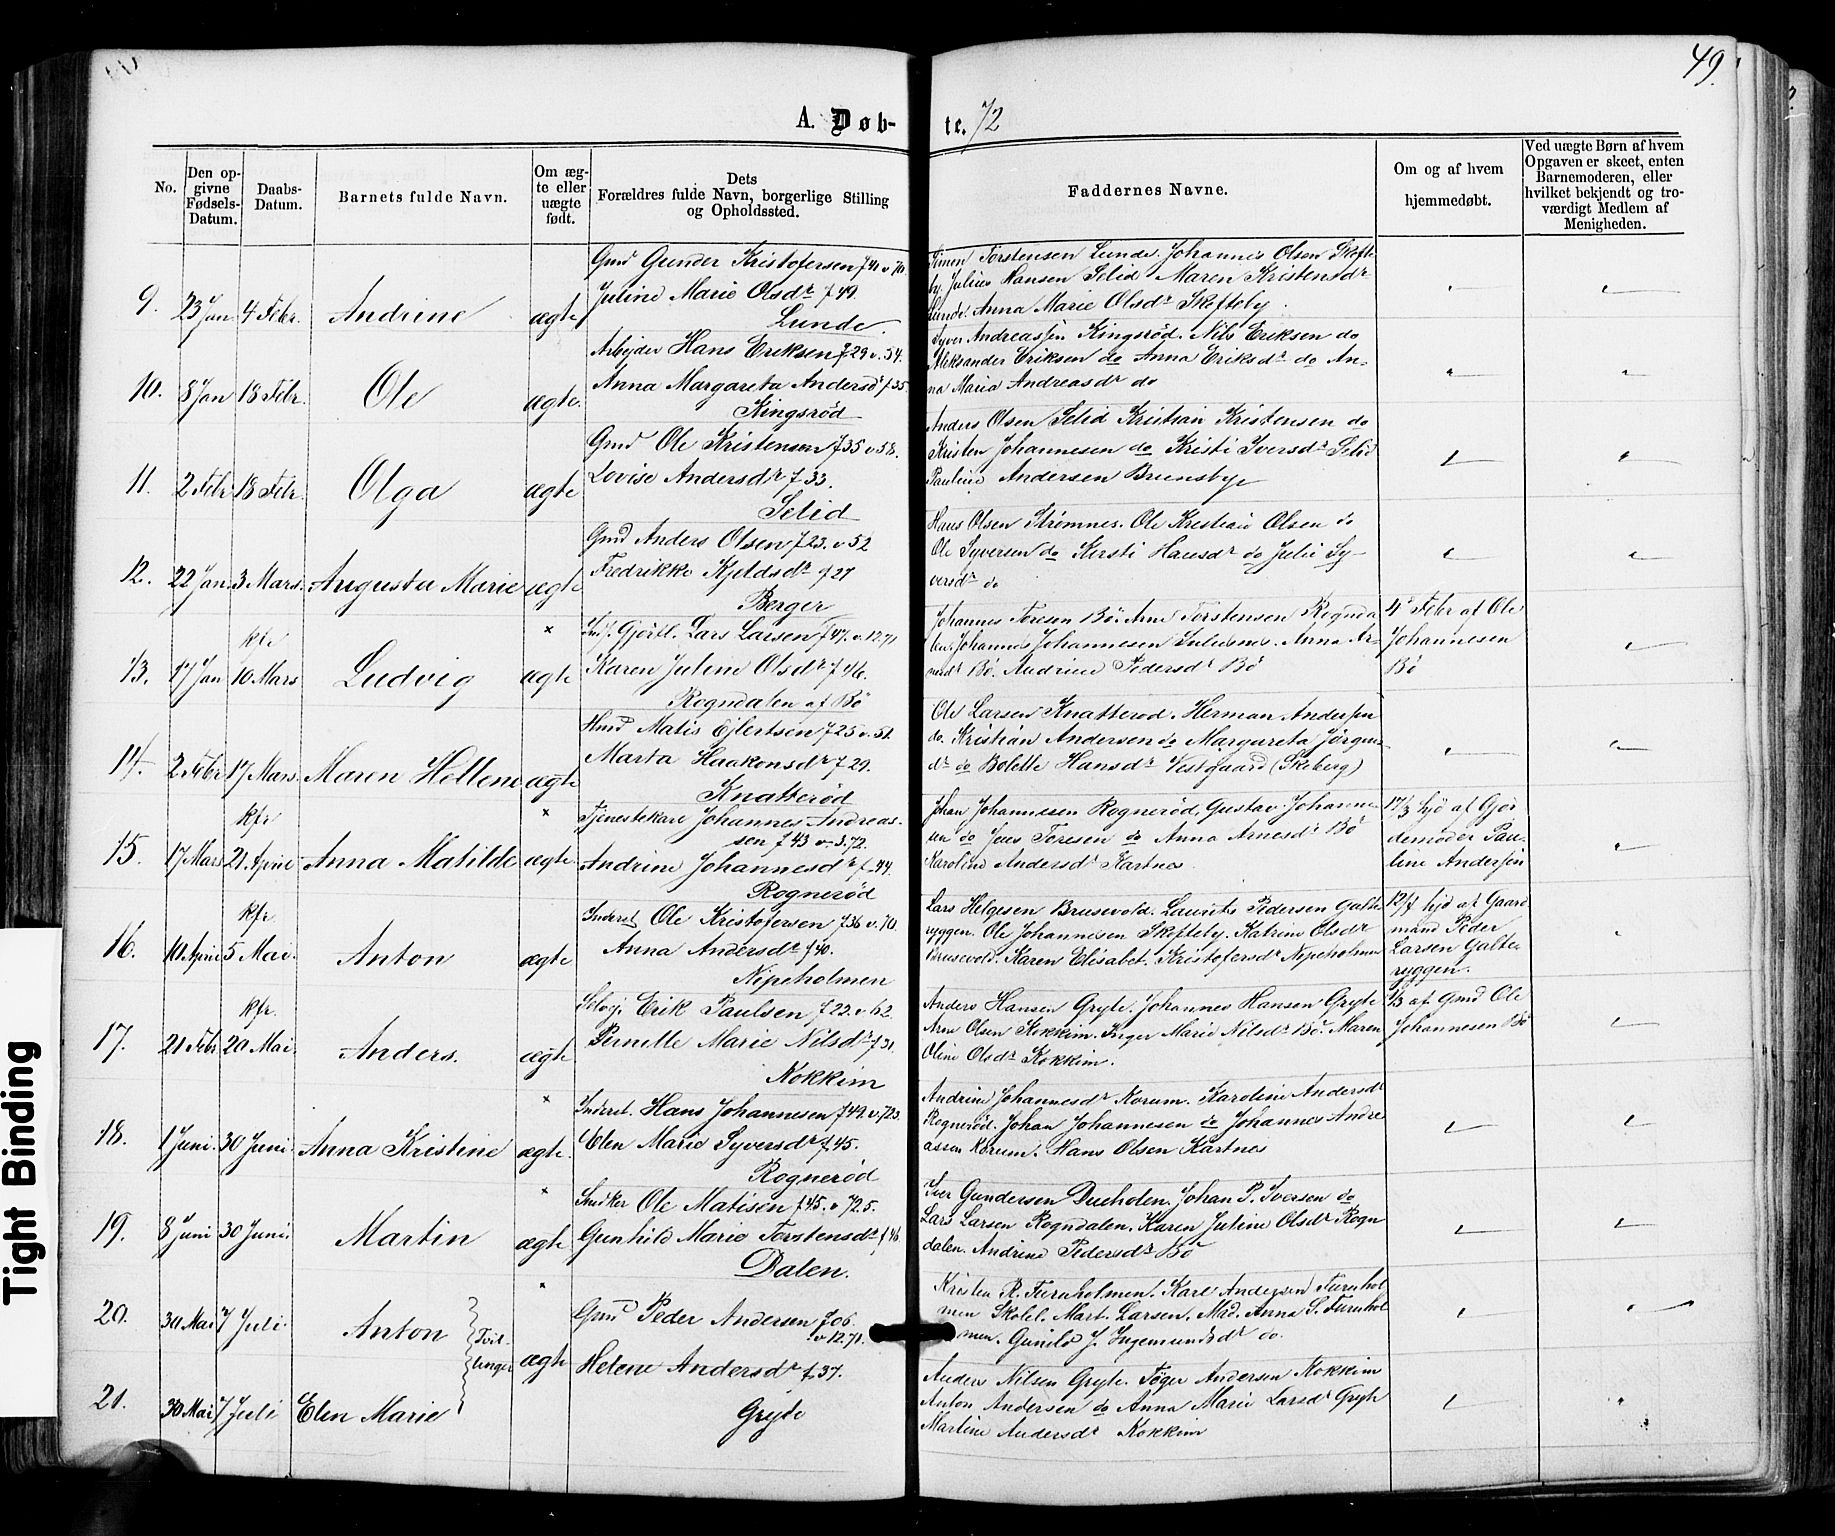 49.
A. Døb- te. 72
No.
Den opgivne Fødsels-Datum.
Daabs-Datum.
Barnets fulde Navn.
Om ægte eller uægte født.
Dets Forældres fulde Navn, borgerlige Stilling og Opholdssted.
Faddernes Navne.
Om og af hvem hjemmedøbt.
Ved uægte Børn af hvem Opgaven er skeet, enten Barnemoderen, eller hvilket bekjendt og troværdigt Medlem af Menigheden.
9. 23 Jan 4 Febr. Andrine ægte
Gmd Gunder Kristofersen f 41 v 70
Juline Marie Olsdr f 49.
Lunde.
Simen Torstensen Lunde. Johannes Olsen Skofte-
by. Julius Hansen Selid. Maren Kristensdr
Lunde. Anna Marie Olsdr Skofteby.
10. 8 Jan 18 Febr. Ole ægte.
Arbejder Hans Eriksen f 29 v. 54.
Anna Margareta Andersdr f 35
Kingsrød
Syver Andreassen Kingsrød. Nils Eriksen do
Aleksander Eriksen do Anna Eriksdr do An-
na Maria Andreasdr do
11. 2 Febr 18 Febr. Olga ægte
Gmd Ole Kristensen f 35 v 58.
Lovise Andersdr f 33.
Selid
Anders Olsen Selid Kristian Kristensen do
Kristen Johannesen do Kristi Iversdr Selid
Pauline Andersen Brunsbye
12. 22 Jan. 3 Mars. Augusta Marie ægte
Gmd Anders Olsen f 23. v 52
Fredrikke Kjeldsdr f 27
Berger
Hans Olsen Strømnes. Ole Kristian Olsen do
Ole Syversen do Kersti Hansdr do Julie Sy-
versdr do
kfr
13. 17 Jan 10 Mars Ludvig ægte
Gjørtl. Lars Larsen f 47. v. 12.71
Karen Juline Olsdr f 46.
Rogndalen af Bö
Johannes Toresen Bö. Arne Torstensen Rognda
len. Johannes Johannesen Anna Ar-
nesdr Bö. Andrine Pedersdr Bö
4de Febr af Ole
Johannesen
Bö
14. 2 Febr 17 Mars. Maren Hellene ægte
Hmd Matis Ejlertsen f 25 v. 51.
Marta Haakonsdr f 29.
Knatterød
Ole Larsen Knatterød. Herman Andersen
do. Kristian Andersen do Margareta Jørgens
dr do Bolette Hansdr Vestgaard (Skeberg)
kfr
15. 17 Mars 21 April Anna Matilde ægte
Tjenestekarl Johannes Andreas-
sen f 43 v 3.72.
Andrine Johannesdr f 44.
Rognerød
Johan Johannesen Rognerød, Gustav Johanne-
sen do Jens Toresen do Anna Arnesdr Bö
Karoline Andersdr Kartnes
17/3 hjd af Gjor
demoder Pau-
line Andersen
kfr
16. 10 April 5 Mai. Anton ægte
Inderst Ole Kristofersen f 36 v. 70.
Anna Andersdr f 40.
Nipeholmen
Lars Helgesen Brusevold. Laurits Pedersen Galte
ryggen. Ole Johannesen Skofteby. Katrine Olsdr
Brusevold. Karen Elisabet. Kristofersdr Nipeholmen
12/4 hjd af Gaard
mand Peder
Larsen Galte
ryggen.
kfr.
17. 21 Febr 20 Mai. Anders. ægte
Selvej. Erik Paulsen f 22. v 62.
Pernelle Marie Nilsdr f 31.
Kokkim
Anders Hansen Gryte. Johannes Hansen Gryte
Arne Olsen Kokkim. Inger Marie Nilsdr Bö. Maren
Oline Olsdr Kokkim.
1/3 af Gmd Ole
Johannesen Bö
18. 1 Juni. 30 Juni. Anna Kristine ægte.
Inderst. Hans Johannesen f 49. v. 72 3.
Elen Marie Syversdr f 45.
Rognerød
Andrine Johannesdr Korum. Karoline Andersdr
Rognerød. Johan Johannesen do Johannes Andre
assen Korum. Hans Olsen Kartnes
19. 8 Juni 30 Juni. Martin ægte
Snedker Ole Matisen f 45. v 72 5.
Gunhild Marie Torstensdr f 46.
Dalen.
Iver Gundersen Dueholen. Johan P. Iversen do
Lars Larsen Rogndalen. Karen Juline Olsdr Rogn
dalen. Andrine Pedersdr Bö
20. 30 Mai 7 Juli. Anton Tvil-
linger ægte
Gmd Peder Andersen f 06.
v 12.71.
Helene Andersdr f 37.
Kristen R. Furuholmen. Karl Andersen Furuhol
men Skolel. Mart. Larsen. Mad. Anna S. Furuhol
men. Gunild J. Ingemundsdr do.
21. 30 Mai 7 Juli Elen Marie
Gryte
Anders Nilsen Gryte. Tøger Andersen Kokkim
Anton Andersen do Anna Marie Larsdr Gryte
Martine Andersdr Kokkim
Tight Binding